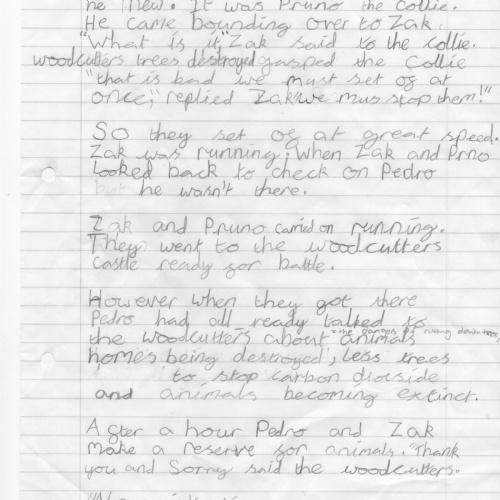 he knew. It was Pruno the collie.
He came bounding over to Zak.
"What is it," Zak said to the collie.
woodcutters trees destroyed gasped the collie
"that is bad we must set of at
once," replied Zak "we mus stop them!"
So they set of at great speed.
Zak was running, when Zak and Prno
looked back to check on Pedro
but he wasn't there.
Zak and Pruno carried on running.
They went to the woodcutters
castle ready for battle.
However when they got there
Pedro had all ready talked to
+ the dangers of cutting down trees,
the woodcutters about animals
homes being destroyed, Less trees
to stop carbon diocside
and animals becoming extinct.
After a hour Pedro and Zak
make a reserve for animals. "Thank
you and Sorry said the woodcutters.